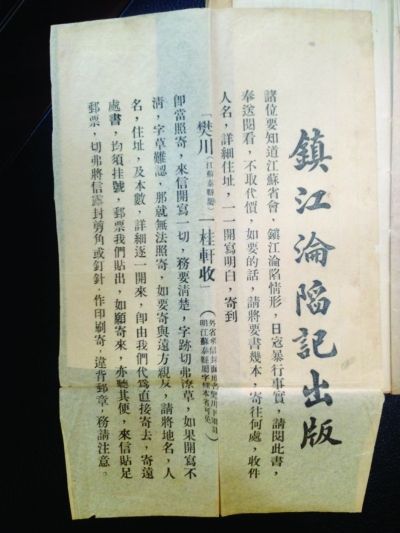 鎮江淪陷記出版
諸位要知道江蘇省會，鎮江淪陷情形，日寇暴行事實，請閱此書，
奉送閱看，不取代價，如要的話，請將要書幾本，寄往何處，收件
人名，詳細住址，一一開寫明白，寄到
「樊川（江蘇泰縣屬）一桂軒收」
外省來信封面
明江蘇泰縣屬字樣本省可免
即當照寄，來信開寫一切，務要清楚，字跡切弗潦草，如果開寫不
清，字草難認，那就無法照寄，如要寄與遠方親友，請將地名，人
名，住址，及本數，詳細逐一開來，即由我們代為直接寄去，寄遠
處書，均須挂號，郵票我們貼出，如願寄來，亦聽其便，來信貼足
郵票，切弗將信露封剪角或釘針，作印刷寄，違背郵章，務請注意。